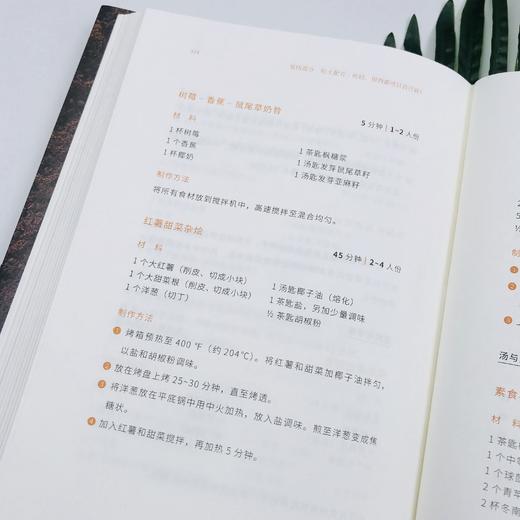 树莓 – 香蕉 – 鼠尾草奶昔
5 分钟 | 1~2 人份
材 料
1 杯树莓
1 个香蕉
1 杯椰奶
1 茶匙枫糖浆
1 汤匙发芽鼠尾草籽
1 汤匙发芽亚麻籽
制作方法
将所有食材放到搅拌机中，高速搅拌至混合均匀。
红薯甜菜杂烩
45 分钟 | 2~4 人份
材 料
1 个大红薯（削皮、切成小块）
1 个大甜菜根（削皮、切成小块）
1 个洋葱（切丁）
1 汤匙椰子油（熔化）
1 茶匙盐，另加少量调味
½ 茶匙胡椒粉
制作方法
1 烤箱预热至 400 ℉（约 204℃）。将红薯和甜菜加椰子油拌匀，
以盐和胡椒粉调味。
2 放在烤盘上烤 25~30 分钟，直至烤透。
3 将洋葱放在平底锅中用中火加热，放入盐调味。煎至洋葱变成焦
糖状。
4 加入红薯和甜菜搅拌，再加热 5 分钟。
汤与
素食
材 料
1 茶匙
1 个中
1 个球
2 个青苹
2 杯冬南